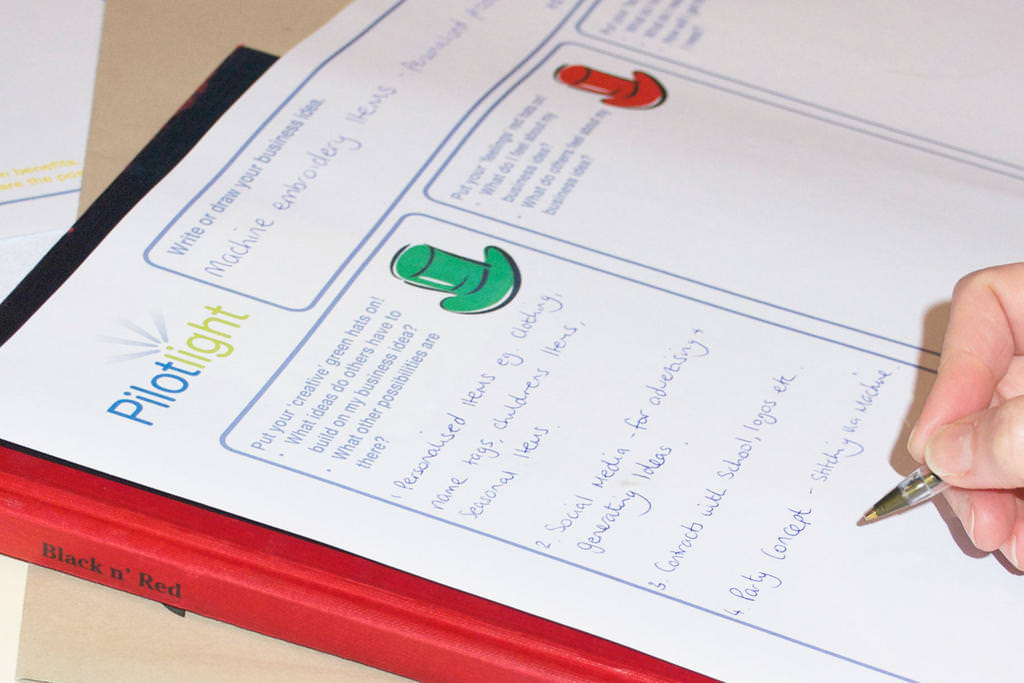 Pilotlight
Write or draw your business idea.
Machine embrodery Items - Personalised
Put your 'creative' green hats on!
• What ideas do others have to
build on my business idea?
• What other possibilities are
there?
1 Personalised items eg clothing,
name tags, childrens items,
Seasonal items.
2. Social Media - for advetising +
generating Ideas.
3. Contracts with School, logos etc.
4. Party Concept - stitching via Machine.
Put your 'feelings' red hats on!
• What do I feel about my
business idea?
• What do others feel about my
business idea?
benefits
are the
Black n' Red